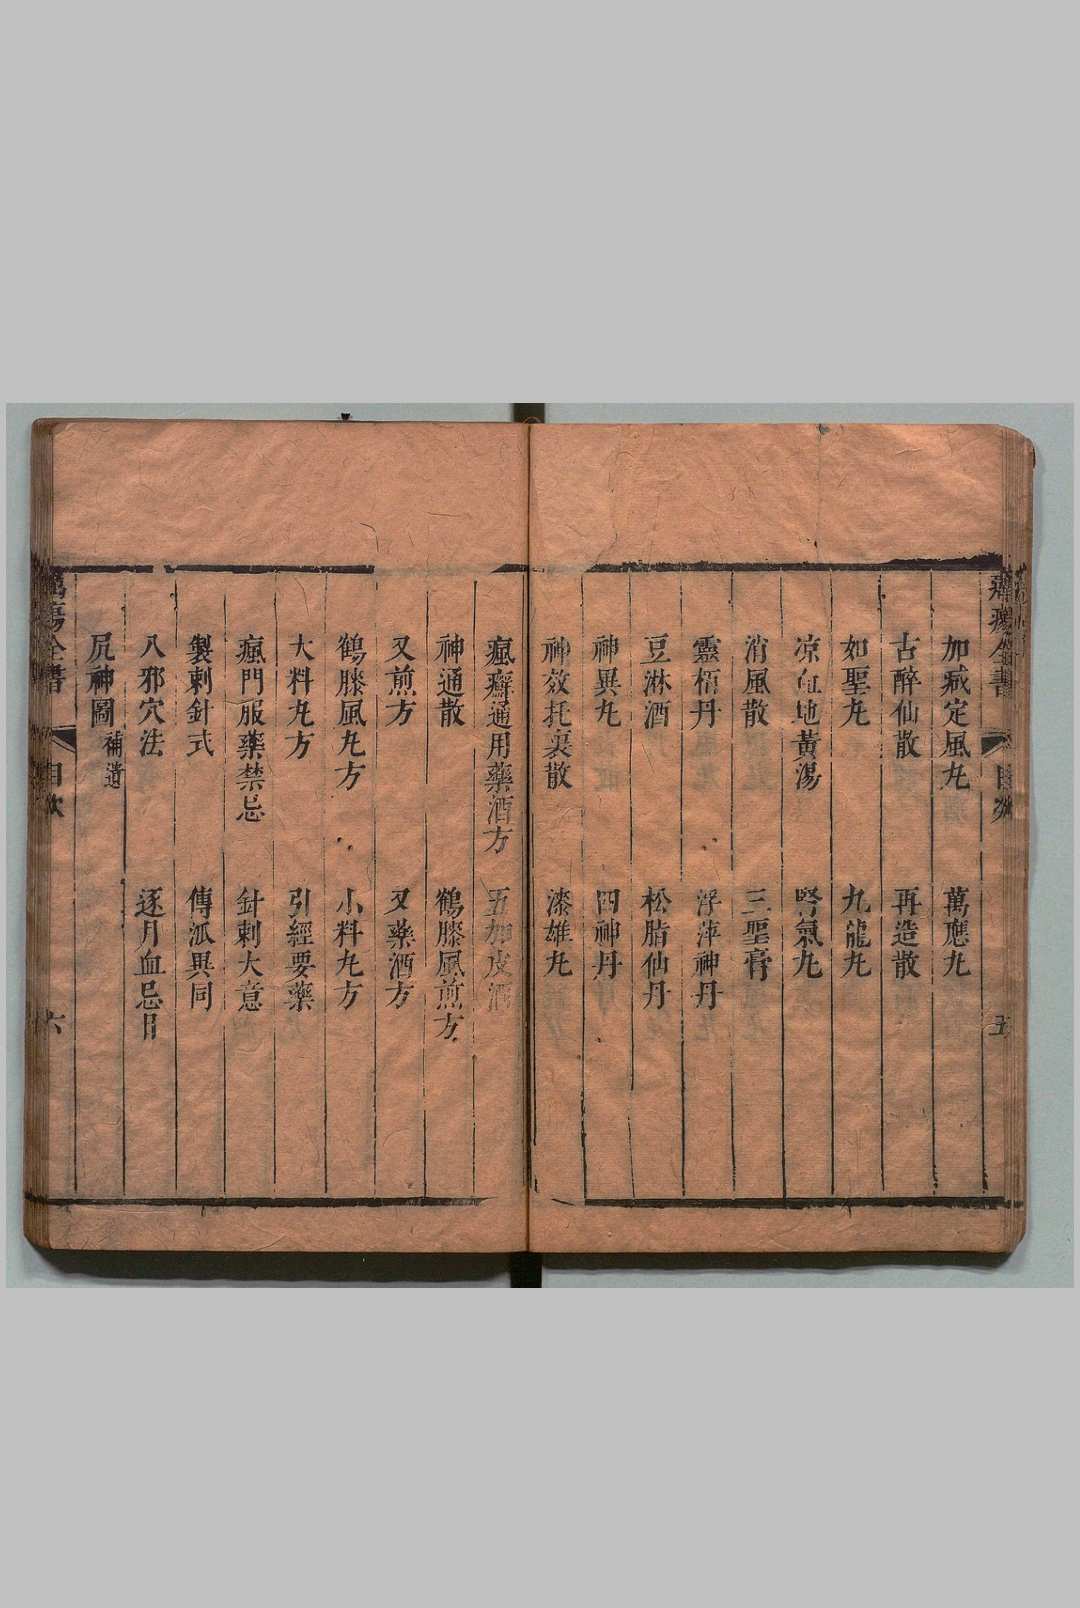 加減定風丸 萬應丸
古醉仙散 再造散
如聖丸 九龍丸
凉血地黃湯 腎氣丸
消風散 三聖膏
靈梧丹 浮萍神丹
豆淋酒 松脂仙丹
神異丸 四神丹
神效托裏散 漆雄丸
瘋癬通用藥酒方 五加皮酒
神通散 鶴膝風煎方
又煎方 又藥酒方
鶴膝風丸方 小料丸方
大料丸方 引經要藥
瘋門服藥禁忌 針刺大意
製刺針式 傳派異同
八邪穴法 逐月血忌日
尻神圖補遺
全書 目次 六